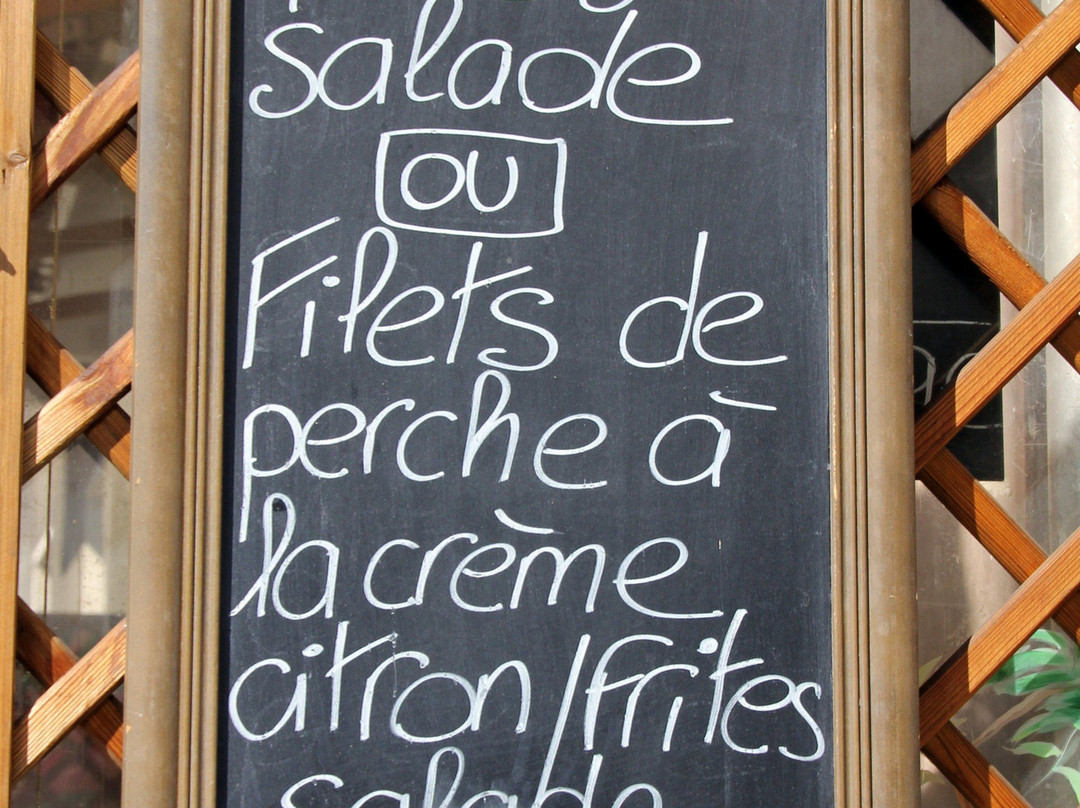 salade
ou
Filets de
perche à
la crème
citron/frites
salade